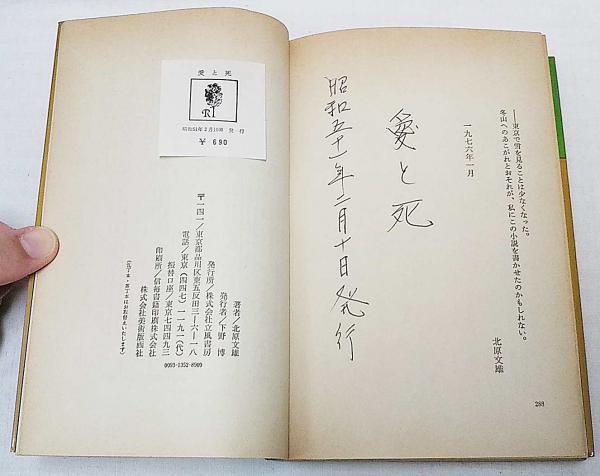 ――東京で雪を見ることは少なくなった。
冬山へのあこがれとおそれが、私にこの小説を書かせたのかもしれない。
一九七六年一月
北原文雄
愛と死
昭和五十一年二月十日発行
288
愛と死
R
昭和51年2月10日 発行
¥690
著者/北原文雄
発行者/下野 博
発行所/株式会社立風書房
〒一四一/東京都品川区東五反田三―六―一八
電話/東京(四四七)一一九一(代)
振替口座/東京七―四四九三
印刷所/信毎書籍印刷株式会社
株式会社美術版画社
(乱丁本・落丁本はお取替えいたします)
0093-1352-8909